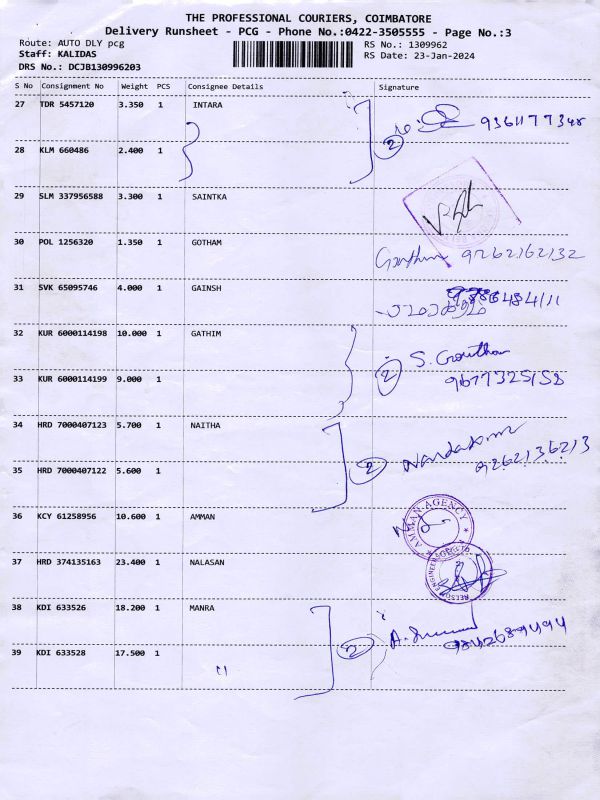 THE PROFESSIONAL COURIERS, COIMBATORE
Delivery Runsheet - PCG - Phone No.:0422-3505555 - Page No.:3
Route: AUTO DLY pcg
RS No.: 1309962
Staff: KALIDAS
RS Date: 23-Jan-2024
DRS No.: DCJB130996203
S No Consignment No Weight PCS Consignee Details Signature
27 TDR 5457120 3.350 1 INTARA
2
28 KLM 660486 2.400 1
29 SLM 337956588 3.300 1 SAINTKA
30 POL 1256320 1.350 1 GOTHAM
31 SVK 65095746 4.000 1 GAINSH
32 KUR 6000114198 10.000 1 GATHIM
2 S. Gowtham
33 KUR 6000114199 9.000 1 9677325158
34 HRD 7000407123 5.700 1 NAITHA
2 Nandakumar
35 HRD 7000407122 5.600 1 9262136213
36 KCY 61258956 10.600 1 AMMAN
AMMAN AGENCY
37 HRD 374135163 23.400 1 NALASAN
38 KDI 633526 18.200 1 MANRA
2
39 KDI 633528 17.500 1 "